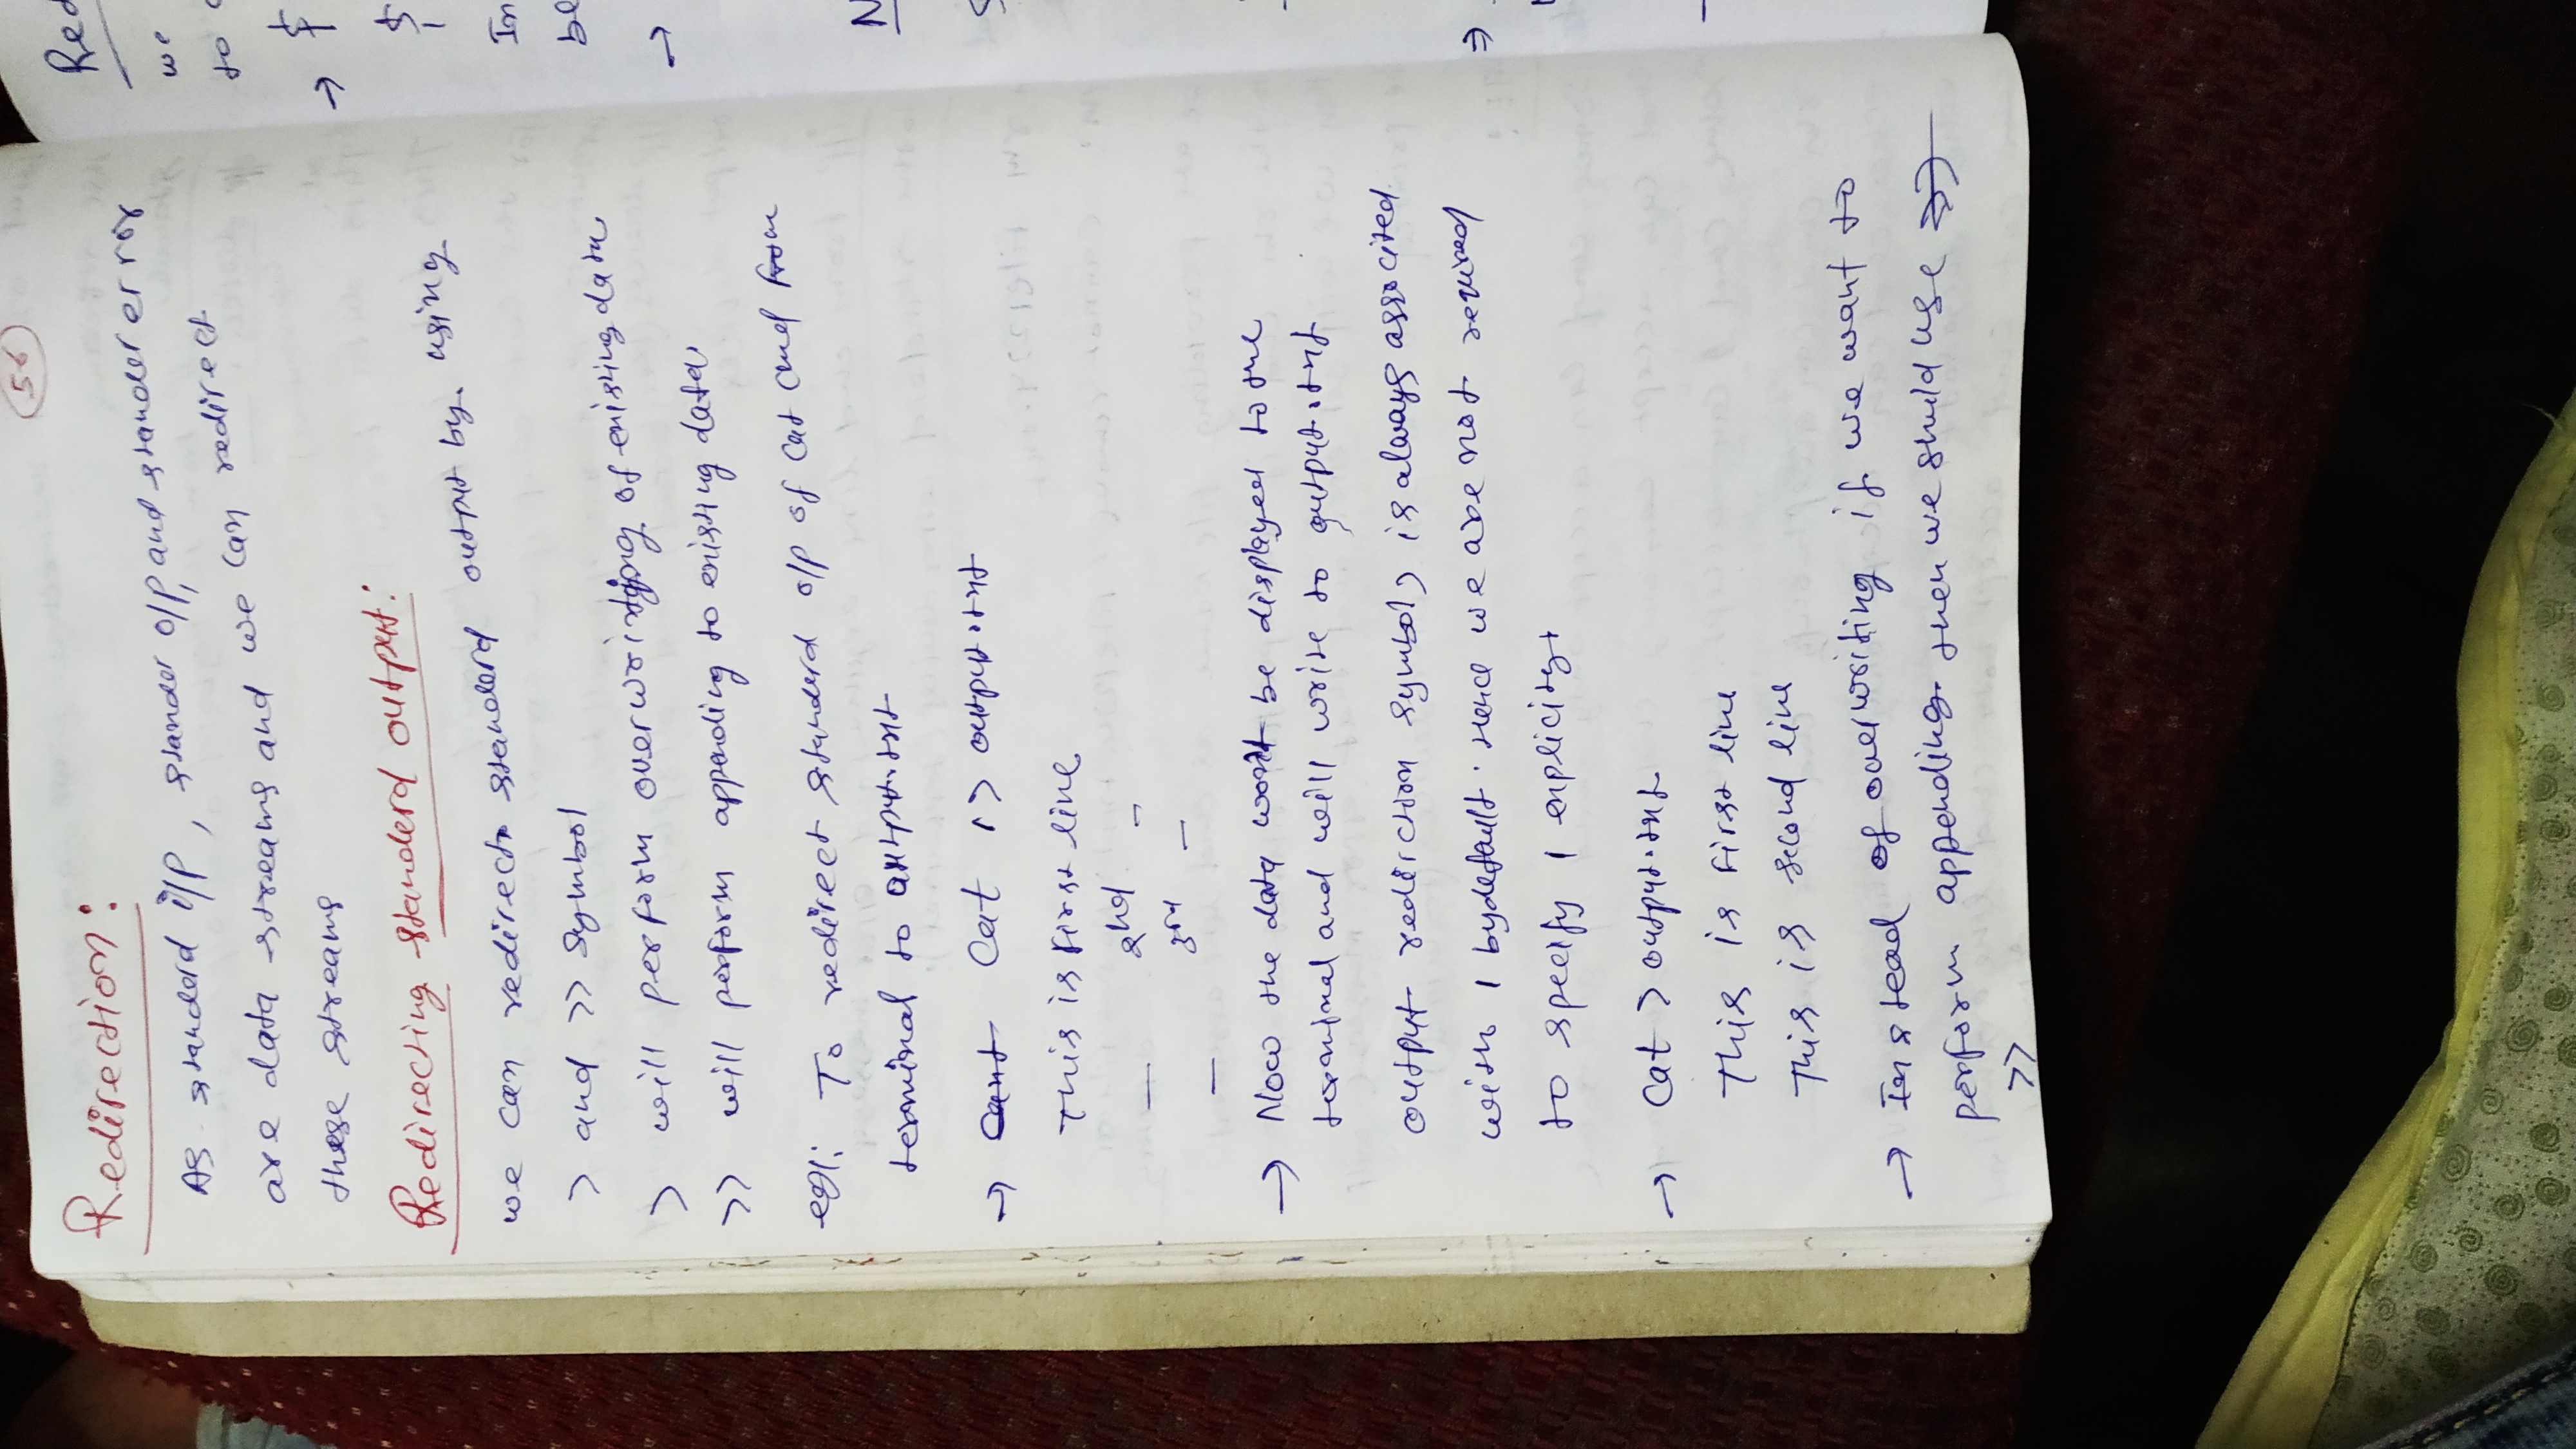 56
Redirection:
As standerd i/p, stander o/p and stander error
are data streams and we can redirect
these streams
Redirecting standerd output:
we can redirect standerd output by using
> and >> symbol
> will perform overwriting of existing data
>> will perform appending to existing data
eg1: To redirect standerd o/p of cat cmd from
terminal to output.txt
→ Cat 1> output.txt
This is first line
— 2nd —
— 3rd —
→ Now the data wont be displayed to the
terminal and will write to output.txt
output redirction symbol > is always associted
with 1 bydefault. hence we are not required
to specify 1 explicityt
→ Cat > output.txt
This is first line
This is scond line
→ Instead of overwriting if we want to
perform appending then we shuld use
>>
Red
we
to
→ $
$
In
be
→
N
⇒